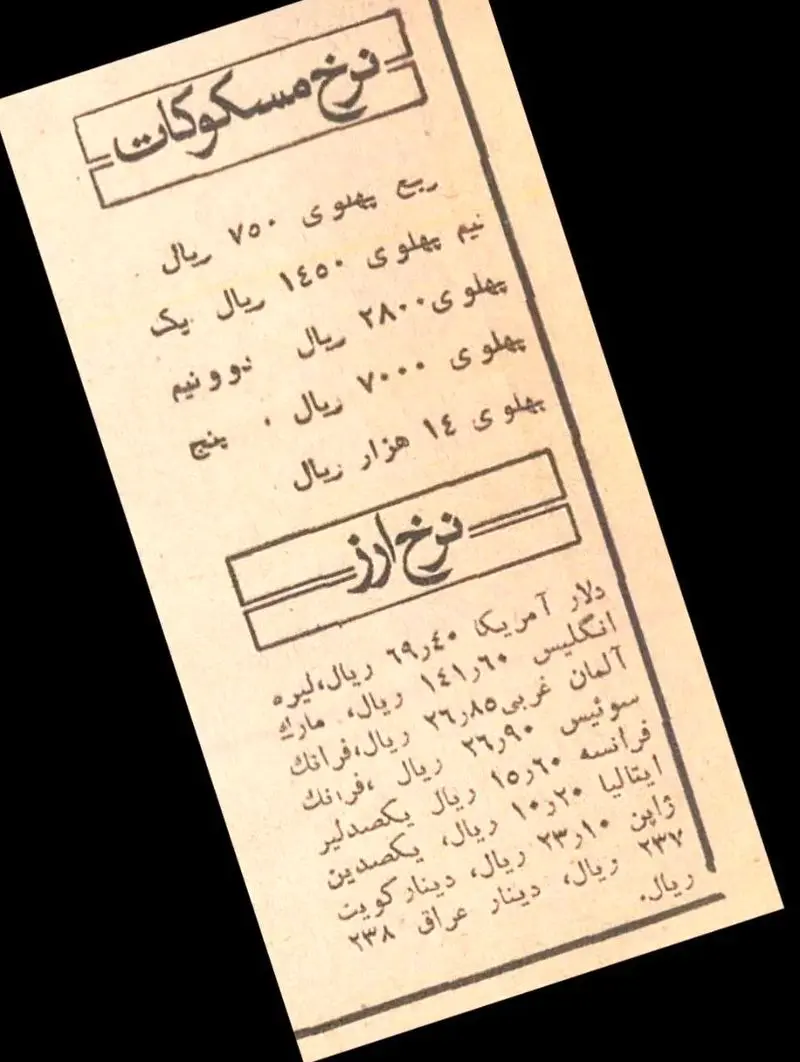 نرخ مسکوکات
ربع پهلوی ۷۵۰ ریال .
نیم پهلوی ۱٤۵۰ ریال یک
پهلوی ۲۸۰۰ ریال دوونیم
پهلوی ۷۰۰۰ ریال . پنج
پهلوی ۱٤ هزار ریال
نرخ ارز
دلار آمریکا ٤۰ر۶۹ ریال،لیره
انگلیس ۶۰ر۱٤۱ ریال، مارك
آلمان غربی ۸۵ر۲۶ ریال،فرانك
سوئیس ۹۰ر۲۶ ریال ،فرانك
فرانسه ۶۰ر۱۵ ریال یکصدلیر
ایتالیا ۲۰ر۱۰ ریال، یکصدین
ژاپن ۱۰ر۲۳ ریال، دینار کویت
۲۳۷ ریال، دینار عراق ۲۳۸
ریال.